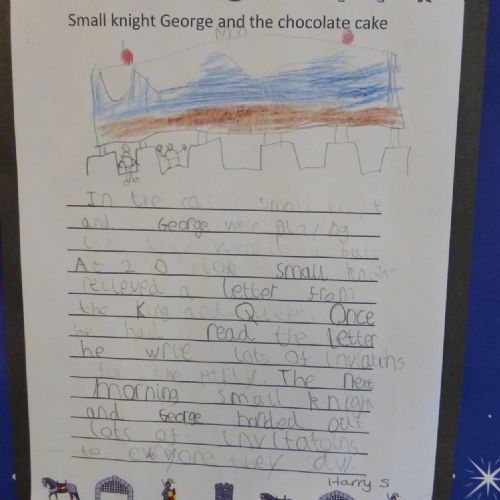 Small knight George and the chocolate cake
In the small
and George were playing
At 2 O clok small knight
recieved a letter from
the King and Queen. Once
he had read the letter
he write lots of invitations
for the party. The next
morning small knight
and George handed out
lots of invitatoins
to everyone they saw.
Harry S